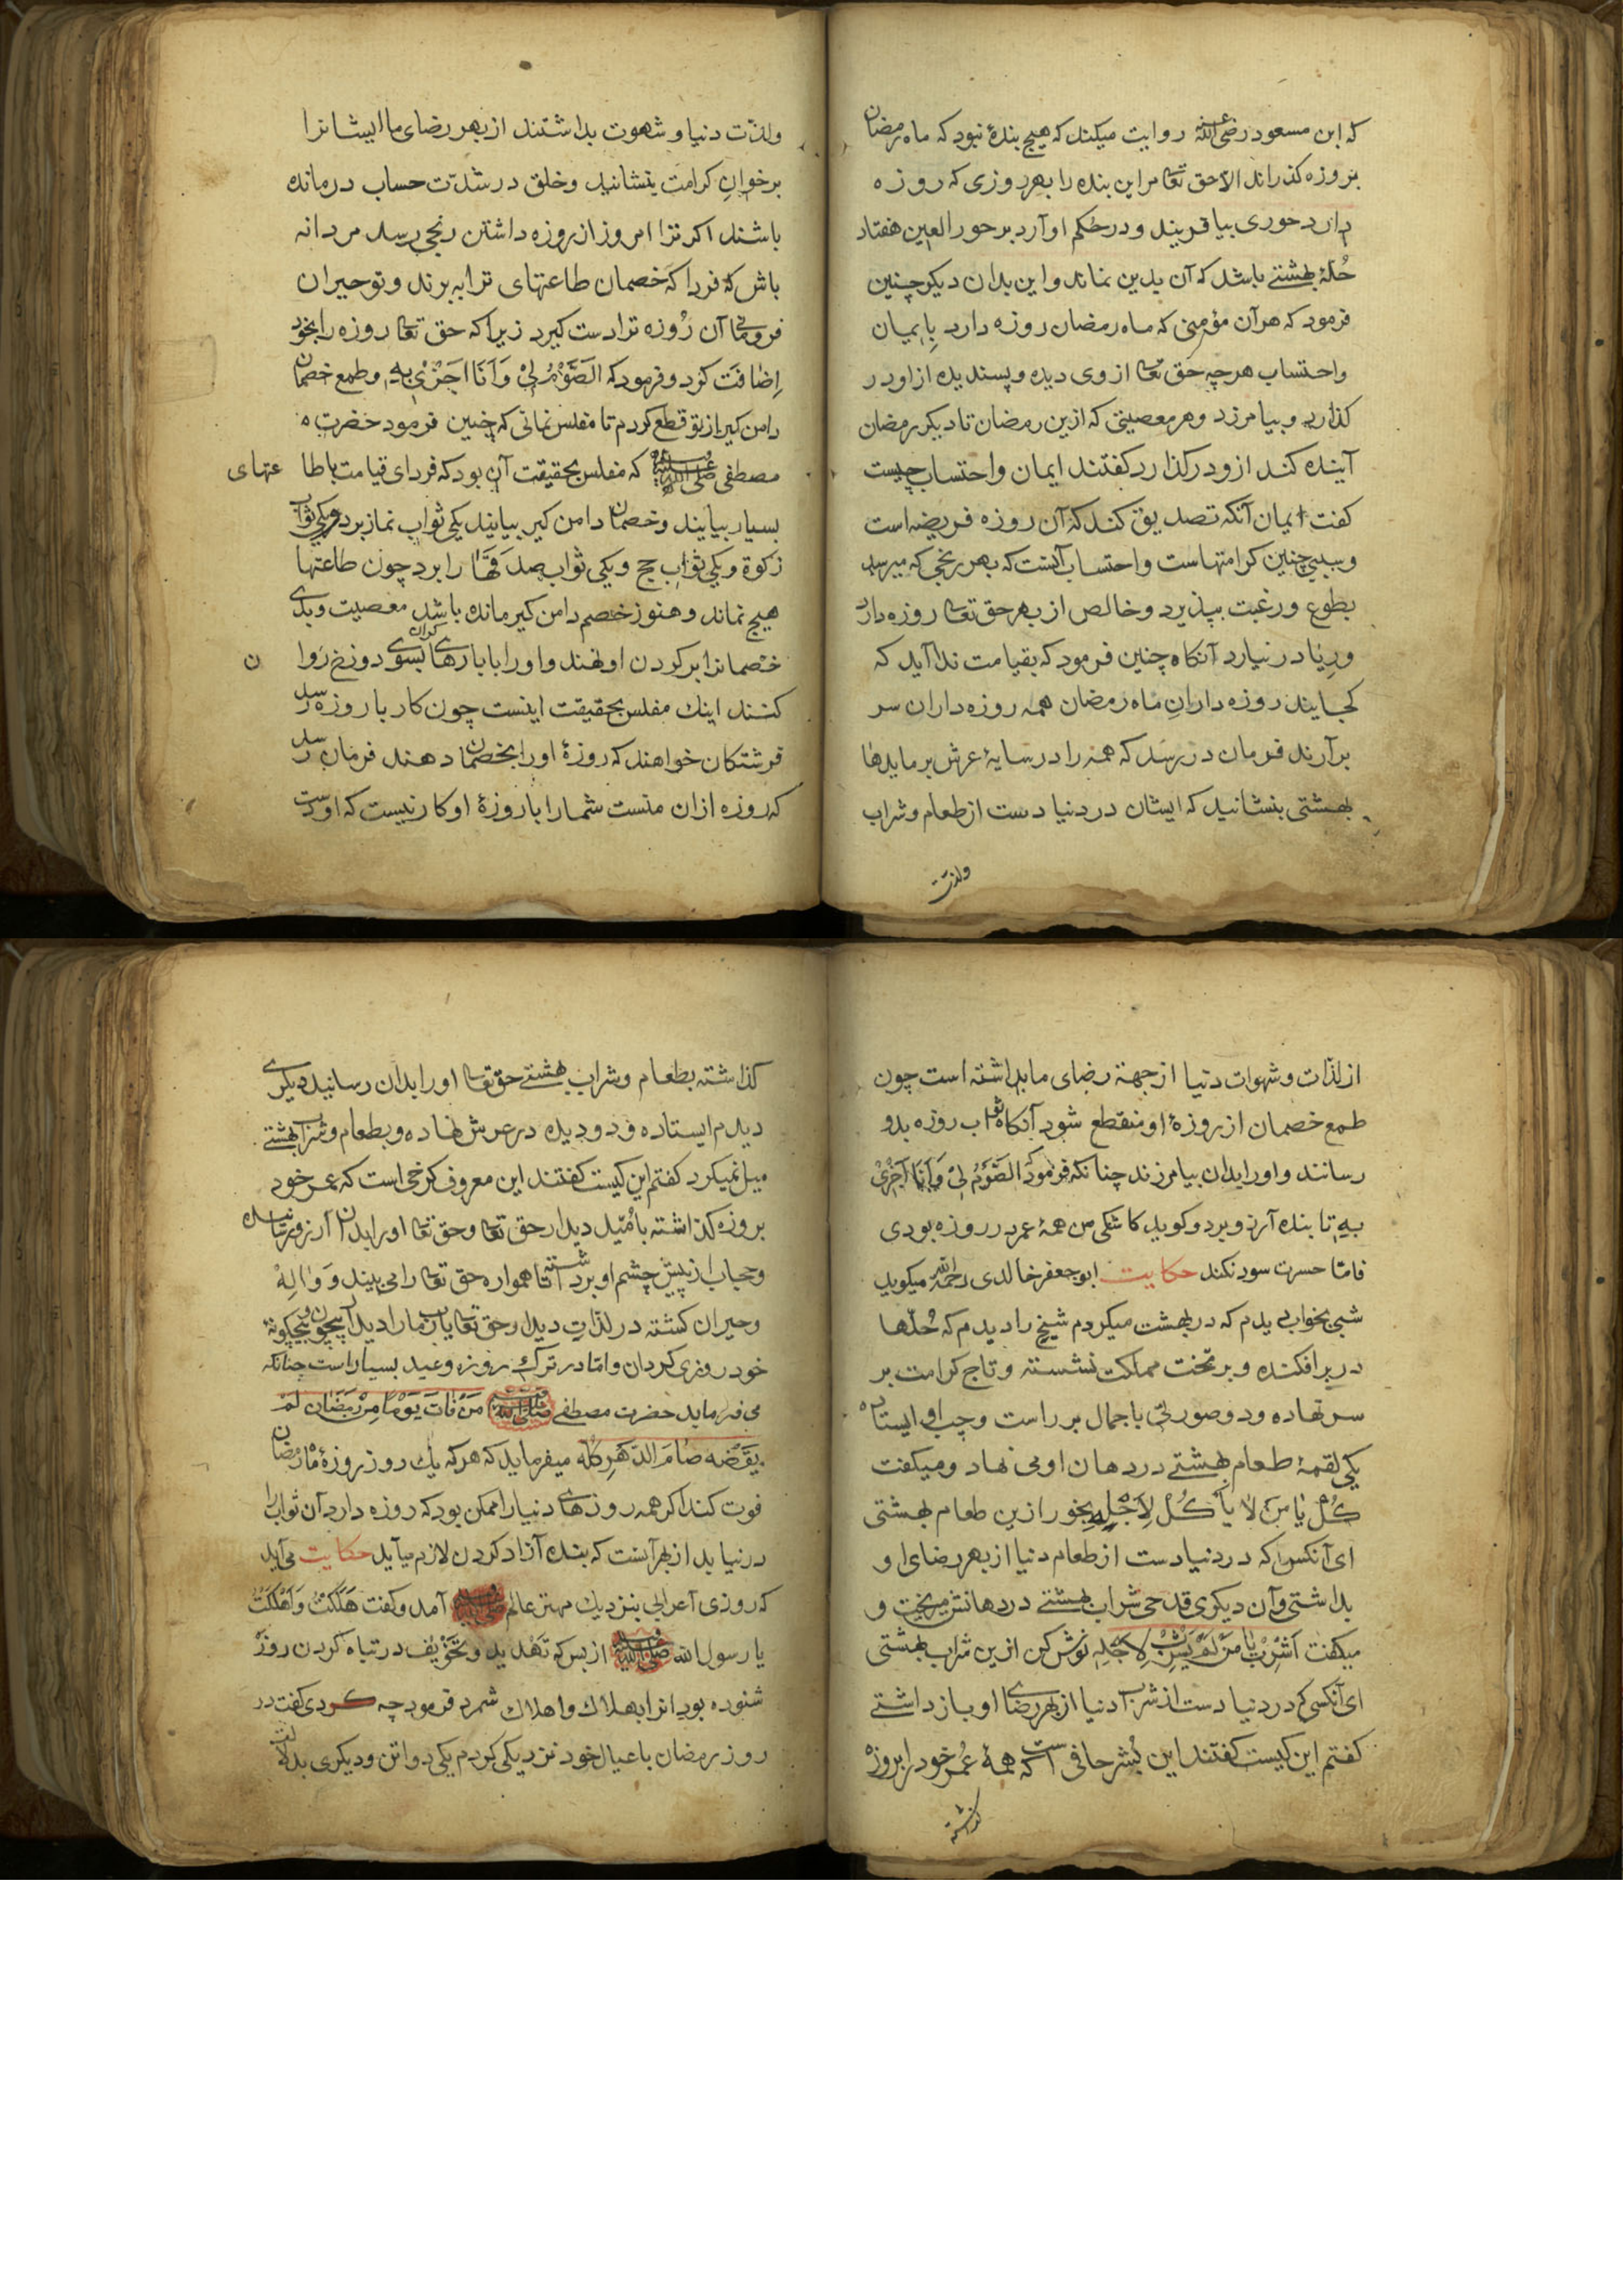 که ابن مسعود رضی الله عنه روایت میکند که هیچ بندهٔ نبود که ماه رمضان
بروزه گذراند الا حق تعا مراین بنده را بهر روزی که روزه
دارد حوری بیافریند و در حکم او آرد بر حور العین هفتاد
حُلّهٔ بهشتی باشد که آن بدین نماند و این بدان دیگر چنین
فرمود که هر آن مؤمنی که ماه رمضان روزه دارد بِایمان
واحتساب هرچه حق تعا از وی دیده و پسندیده از او در
کذارد و بیامرزد و هر معصیتی که ازین رمضان تا دیکر رمضان
آینده کند ازو درکذارد کفتند ایمان واحتساب چیست
کفت ایمان آنکه تصدیق کند که آن روزه فریضه است
و سببی چنین کرامتهاست واحتساب آنست که بهر رنجی که میرسد
بطوع و رغبت بپذیرد و خالص از بهر حق تعا روزه دارد
و رِیا در نیارد آنکاه چنین فرمود که بقیامت ندا آید که
کجایند روزه دارانِ ماه رمضان همه روزه داران سر
برآرند فرمان دررسد که همه را در سایهٔ عرش بر مایدها
بهشتی بنشانید که ایشان در دنیا دست از طعام و شراب
ولذّت
ولذّت دنیا و شهوت بداشتند از بهر رضای ما ایشانرا
برخوانِ کرامت بنشانید و خلق در شدّت حساب درمانده
باشند اکر ترا امروز از روزه داشتن رنجی رسد مردانه
باش که فردا که خصمان طاعتهای ترا به برند و تو حیران
فرومانی آن رُوزه ترا دست کیرد زیرا که حق تعا روزه را بخود
اِضافت کرد و فرمود که اَلصَّوْمُ لِیْ وَاَنَا اَجْزِیْ بِهِ و طمع خصمان
دامن کیر از تو قطع کردم تا مفلس نمانی که چنین فرمود حضرت
مصطفی صلی الله علیه وسلم که مفلس بحقیقت آن بود که فردای قیامت باطاعتهای
بسیار بیایند و خصمان دامن کیر بیایند یکی ثواب نماز برد ویکی ثواب
زکوة ویکی ثواب حج ویکی ثواب صدقها را برد چون طاعتها
هیچ نماند و هنوز خصم دامن کیر مانده باشد معصیت وبدی
خصمانرا بر کردن او نهند و اورا با بارهای کران بسوی دوزخ روان
کنند اینك مفلس بحقیقت اینست چون کار با روزه رسد
فرشتکان خواهند که روزهٔ اورا بخصمان دهند فرمان رسد
که روزه ازان منست شمارا با روزهٔ او کار نیست که او دست
از لذّات و شهوات دنیا از جهة رضای ما بداشته است چون
طمع خصمان از روزهٔ او منقطع شود آنکاه ثواب روزه بدو
رسانند و اورا بدان بیامرزند چنانکه فرمود که اَلصَّوْمُ لِیْ وَاَنَا اَجْزِیْ
بِهِ تا بنده آرزو برد و کوید کاشکی من همهٔ عمر در روزه بودی
فامّا حسرت سود نکند حکایت ابو جعفر خالدی رحمه الله میکوید
شبی بخواب دیدم که در بهشت میکردم شیخ را دیدم که حُلّها
در بر افکنده و بر تخت مملکت نشسته و تاج کرامت بر
سر نهاده و دو صورتی باجمال بر راست و چپ او ایستاده
یکی لقمهٔ طعام بهشتی در دهان او می نهاد و میکفت
کُلْ یَا مَنْ لَا یَأکُلْ لِاَجْلِهِ بخور ازین طعام بهشتی
ای آنکس که در دنیا دست از طعام دنیا از بهر رضای او
بداشتی و آن دیکری قدحی شراب بهشتی در دهانش میریخت و
میکفت اَشْرِبْ یَا مَنْ لَمْ یَشْرِبْ لِاَجْلِهِ نوش کن ازین شراب بهشتی
ای آنکسی که در دنیا دست از شراب دنیا از بهر رضای او باز داشتی
کفتم این کیست کفتند این بُشر حافی است که همهٔ عُمر خود را بروزه
کذاشته
کذاشته بطعام و شراب بهشتی حق تعا اورا بدان رسانید دیکری
دیدم ایستاده و دو دیده در عرش نهاده و بطعام و شراب بهشتی
میل نمیکرد کفتم این کیست کفتند این معروف کرخی است که عمر خود
بروزه کذاشته باُمّید دیدار حق تعا و حق تعا اورا بدان آرزو رسانیده
و حجاب از پیش چشم او برداشته تا همواره حق تعا را می بیند وَ وَالِهْ
و حیران کشته در لذّاتِ دیدار حق تعا یارب مارا دیدار بیچون و بیچکونهٔ
خود روزی کردان و امّا در ترك روزه وعید بسیار است چنانکه
می فرماید حضرت مصطفی صلی الله علیه وسلم مَنْ فَاتَ یَوْمًا مِنْ رَمَضَان لَمْ
یَقْضِه صَامَ الدَّهْرِ کُلّه میفرماید که هر که یك روز روزهٔ ماه رمضان
فوت کند اکر همه روزهای دنیارا ممکن بود که روزه دارد آن ثواب را
در نیابد از بهر آنست که بنده آزاد کردن لازم میآید حکایت می آید
که روزی اعرابی بنزدیك مهتر عالم صلی الله علیه وسلم آمد و کفت هَلَکْتُ وَاَهْلَکْتُ
یا رسول الله صلی الله علیه وسلم از بس که تهدید و تخویف در تباه کردن روزه
شنوده بود انرا بهلاك و اهلاك شمرد فرمود چه کردی کفت در
روز رمضان با عیال خود نزدیکی کردم یکی دو اتن و دیکری بدلالت